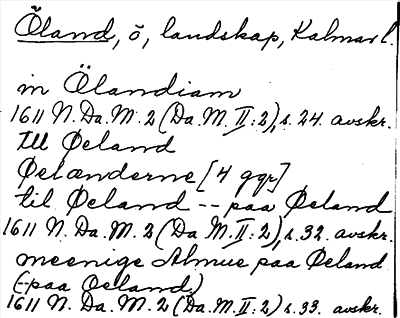 Öland, ö, landskap, Kalmar l.
in Ölandiam
1611 N. Da. M. 2 (Da. M. II: 2), s. 24. avskr.
till Øeland
Øelænderne [4 ggr]
til Øeland -- paa Øeland
1611 N. Da. M. 2 (Da. M. II: 2), s. 32. avskr.
meenige Almue paa Øeland
(-paa Oeland)
1611 N. Da. M. 2 (Da. M. II: 2) s. 33. avskr.